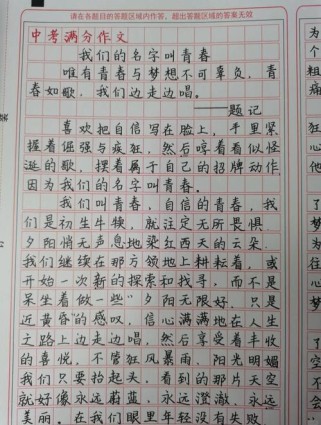 请在各题目的答题区域内作答，超出答题区域的答案无效
中考满分作文
我们的名字叫青春
唯有青春与梦想不可辜负，青
春如歌，我们边走边唱。
——题记
喜欢把自信写在脸上，手里紧
握着倔强与疯狂，然后哼着看似怪
诞的歌，摆着属于自己的招牌动作，
因为我们的名字叫青春。
我们叫青春，自信的青春，我
们是初生牛犊，就注定无所畏惧
夕阳悄无声息地染红西天的云朵，
我们继续在那方领地上耕耘着，或
开始一次新的探索和找寻，而不是
呆坐着做一些“夕阳无限好，只是
近黄昏”的感叹，信心满满地在人生
之路上边走边唱，然后享受着丰收
的喜悦。不管狂风暴雨，阳光明媚
我们只要抬起头，看到的那片天空
就好像永远蔚蓝，永远澄澈，永远
美丽。在我们眼里年轻没有失败